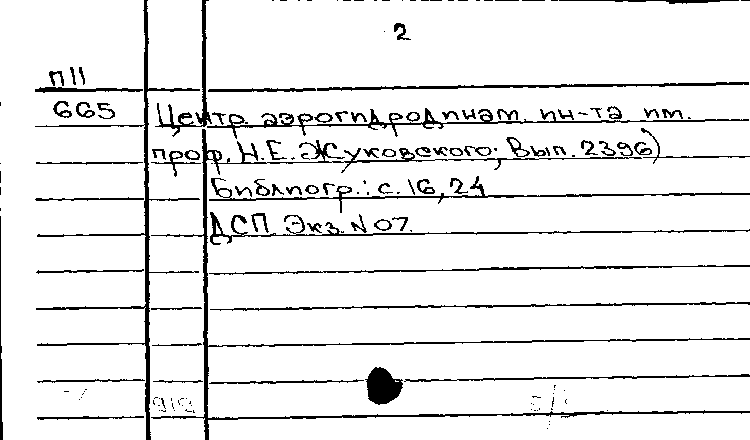 2
П11
665 Центр. аэрогидродинам. ин-та им.
проф. Н.Е. Жуковского; Вып. 2396)
Библиогр.: с. 16, 24
ДСП Экз. N 07.